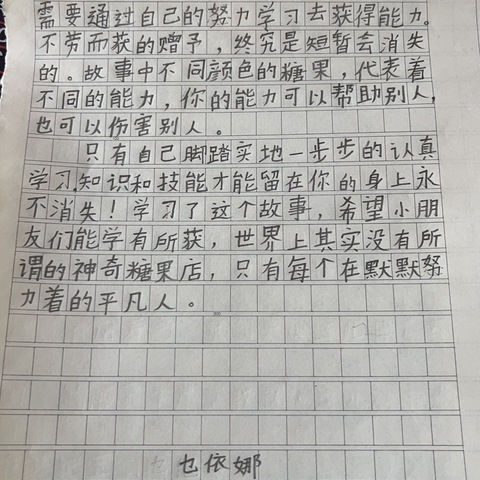 需要通过自己的努力学习去获得能力。
不劳而获的赠予，终究是短暂会消失
的。故事中不同颜色的糖果，代表着
不同的能力，你的能力可以帮助别人，
也可以伤害别人。
只有自己脚踏实地一步步的认真
学习，知识和技能才能留在你的身上永
不消失！学习了这个故事，希望小朋
友们能学有所获，世界上其实没有所
谓的神奇糖果店，只有每个在默默努
力着的平凡人。
乜依娜